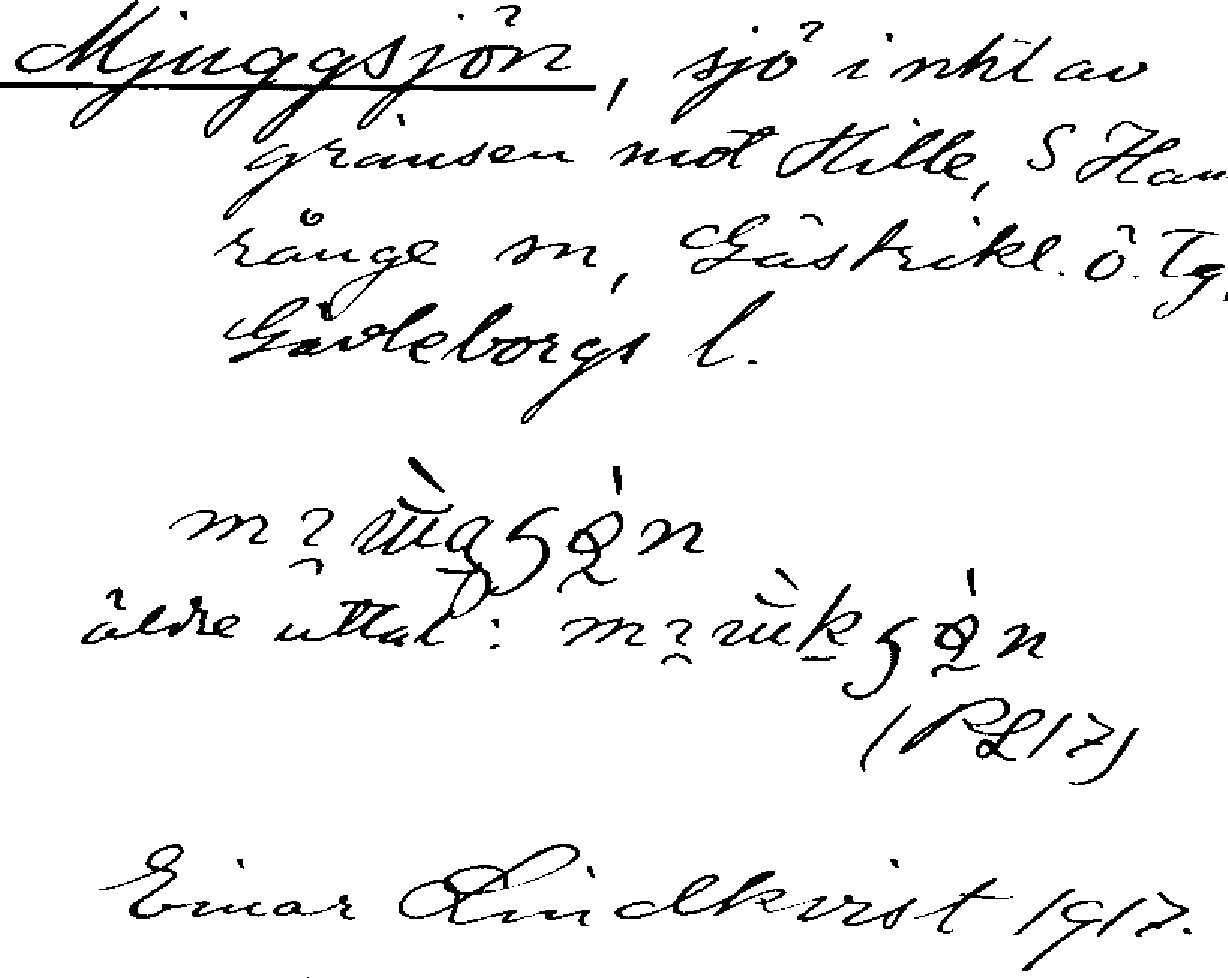 Mjuggsjön, sjö i
gränsen mot Hille, S Ham
rånge sn, Gästrikl. ö. Tg,
Gävleborgs l.
äldre uttal:
(PL 17)
Einar Lindkvist 1917.